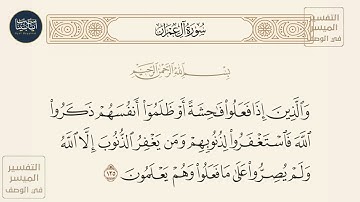 سُورَةُ آلِ عِمْرَان
التفسير
الميسر
في الوصف
بِسْمِ اللَّهِ الرَّحْمَٰنِ الرَّحِيمِ
وَالَّذِينَ إِذَا فَعَلُوا فَاحِشَةً أَوْ ظَلَمُوا أَنفُسَهُمْ ذَكَرُوا
اللَّهَ فَاسْتَغْفَرُوا لِذُنُوبِهِمْ وَمَن يَغْفِرُ الذُّنُوبَ إِلَّا اللَّهُ
وَلَمْ يُصِرُّوا عَلَىٰ مَا فَعَلُوا وَهُمْ يَعْلَمُونَ ١٣٥
التفسير
الميسر
في الوصف